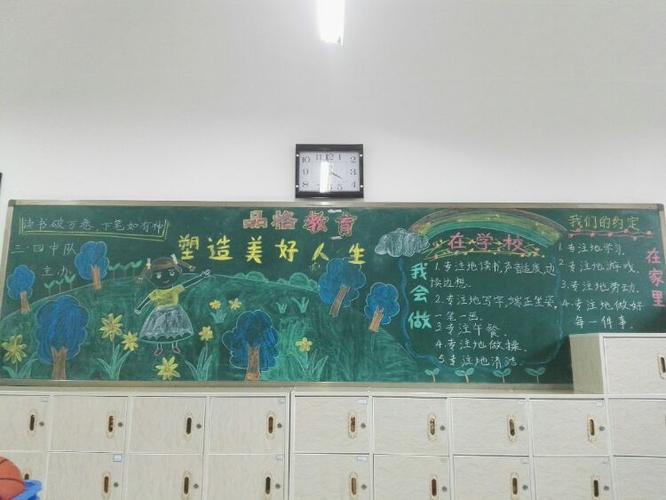 读书破万卷,下笔如有神
三·四中队
主办
品格教育
塑造美好人生
我会做
在学校
1.专注地读书,声音适度,边
读边想.
2.专注地写字,端正坐姿,
一笔一画.
3.专注午餐.
4.专注地做操.
5.专注地清洁.
我们的约定
1.专注地学习.
2.专注地游戏.
3.专注地劳动.
4.专注地做好
每一件事.
在家里